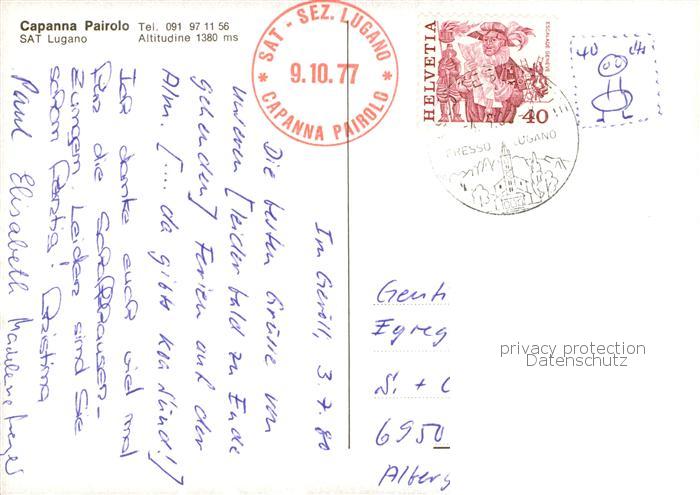 Capanna Pairolo Tel. 091 97 11 56
SAT Lugano Altitudine 1380 ms
* SAT - SEZ. LUGANO *
9.10.77
CAPANNA PAIROLO
HELVETIA
ESCALADE GENÈVE
40
40 ch
PRESSO LUGANO
Im Geröll, 3.7.80
Die besten Grüsse von
unseren [leider bald zu Ende
gehenden] Ferien auf der
Alm. [... da gibts kei Sünd!]
Ich danke euch vil mal
für die Schaffhauser-
Zungen. Leider sind Sie
schon fertig. Cristina
Paul Elisabeth Madeleine
Genti
Egreg
S. + C
6950
Alberg
privacy protection
Datenschutz